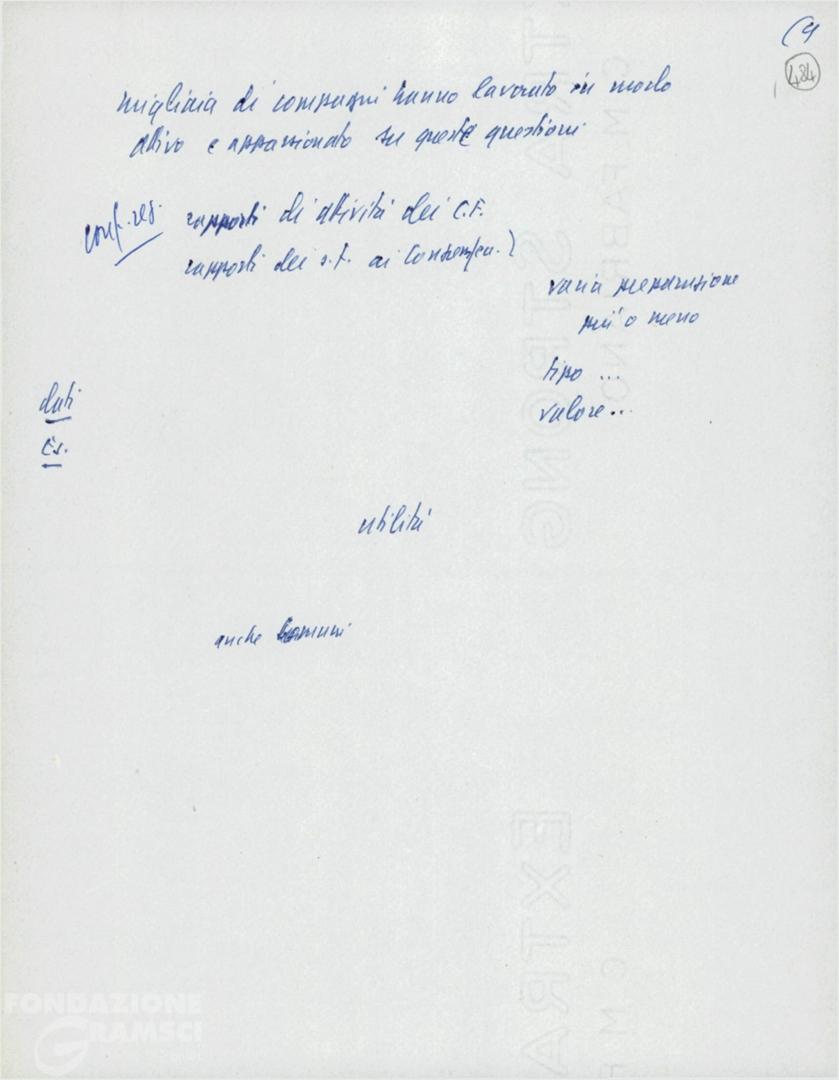 (4
484
migliaia di compagni hanno lavorato in modo
attivo e appassionato su queste questioni
conf. reg.
rapporti di attività dei C.F.
rapporti dei s.f. ai
varia preparazione
più o meno
tipo ...
valore ...
dati
es.
utilità
anche Comuni
EXTRA STRONG
C.M. FABRIANO
EXTRA
C M F
FONDAZIONE
GRAMSCI